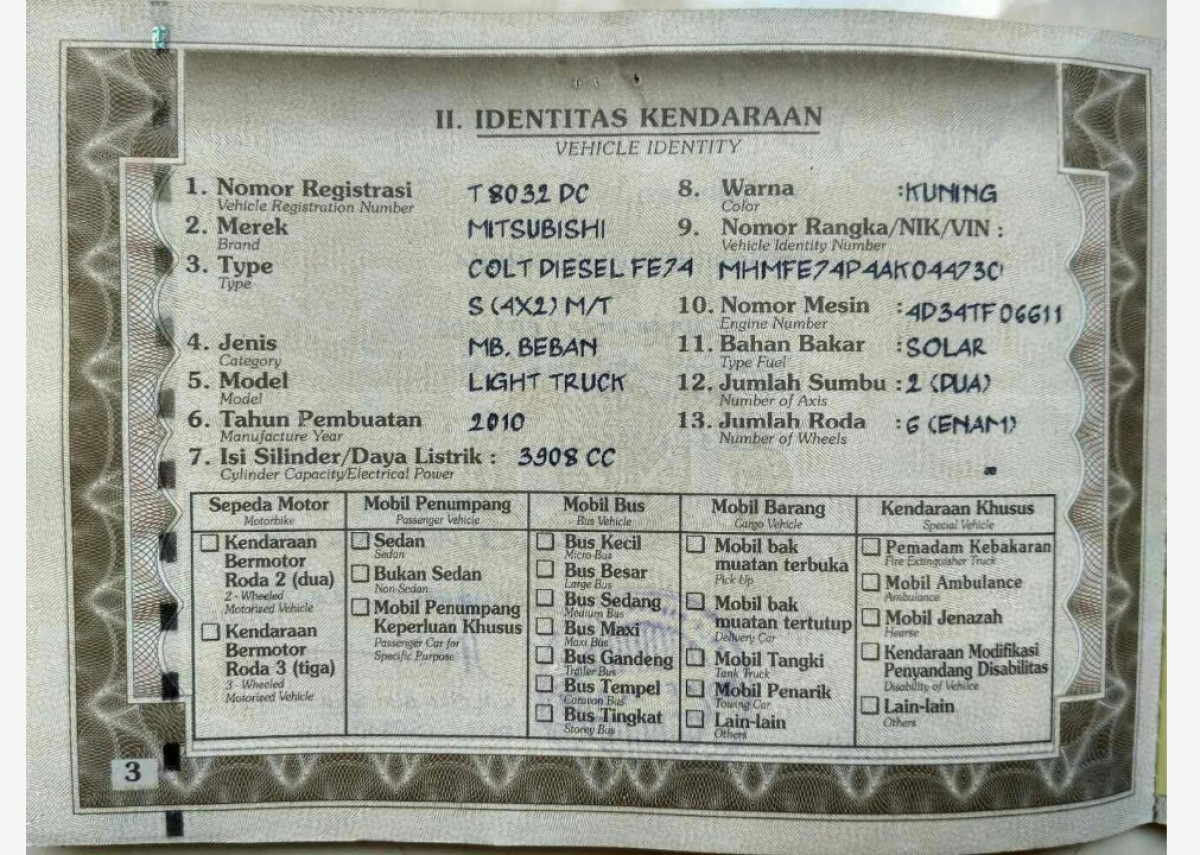 II. IDENTITAS KENDARAAN
VEHICLE IDENTITY
1. Nomor Registrasi T 8032 DC
Vehicle Registration Number
2. Merek MITSUBISHI
Brand
3. Type COLT DIESEL FE74
Type
S (4X2) M/T
4. Jenis MB. BEBAN
Category
5. Model LIGHT TRUCK
Model
6. Tahun Pembuatan 2010
Manufacture Year
7. Isi Silinder/Daya Listrik : 3908 CC
Cylinder Capacity/Electrical Power
8. Warna : KUNING
Color
9. Nomor Rangka/NIK/VIN :
Vehicle Identity Number
MHMFE74P4AK044730
10. Nomor Mesin : 4D34TF06611
Engine Number
11. Bahan Bakar : SOLAR
Type Fuel
12. Jumlah Sumbu : 2 (DUA)
Number of Axis
13. Jumlah Roda : 6 (ENAM)
Number of Wheels
Sepeda Motor
Motorbike
Kendaraan
Bermotor
Roda 2 (dua)
2 - Wheeled
Motorized Vehicle
Kendaraan
Bermotor
Roda 3 (tiga)
3 - Wheeled
Motorized Vehicle
Mobil Penumpang
Passenger Vehicle
Sedan
Sedan
Bukan Sedan
Non-Sedan
Mobil Penumpang
Keperluan Khusus
Passenger Car for
Specific Purpose
Mobil Bus
Bus Vehicle
Bus Kecil
Micro Bus
Bus Besar
Large Bus
Bus Sedang
Medium Bus
Bus Maxi
Maxi Bus
Bus Gandeng
Trailer Bus
Bus Tempel
Caravan Bus
Bus Tingkat
Storey Bus
Mobil Barang
Cargo Vehicle
Mobil bak
muatan terbuka
Pick Up
Mobil bak
muatan tertutup
Delivery Car
Mobil Tangki
Tank Truck
Mobil Penarik
Towing Car
Lain-lain
Others
Kendaraan Khusus
Special Vehicle
Pemadam Kebakaran
Fire Extinguisher Truck
Mobil Ambulance
Ambulance
Mobil Jenazah
Hearse
Kendaraan Modifikasi
Penyandang Disabilitas
Disability of Vehilce
Lain-lain
Others
3